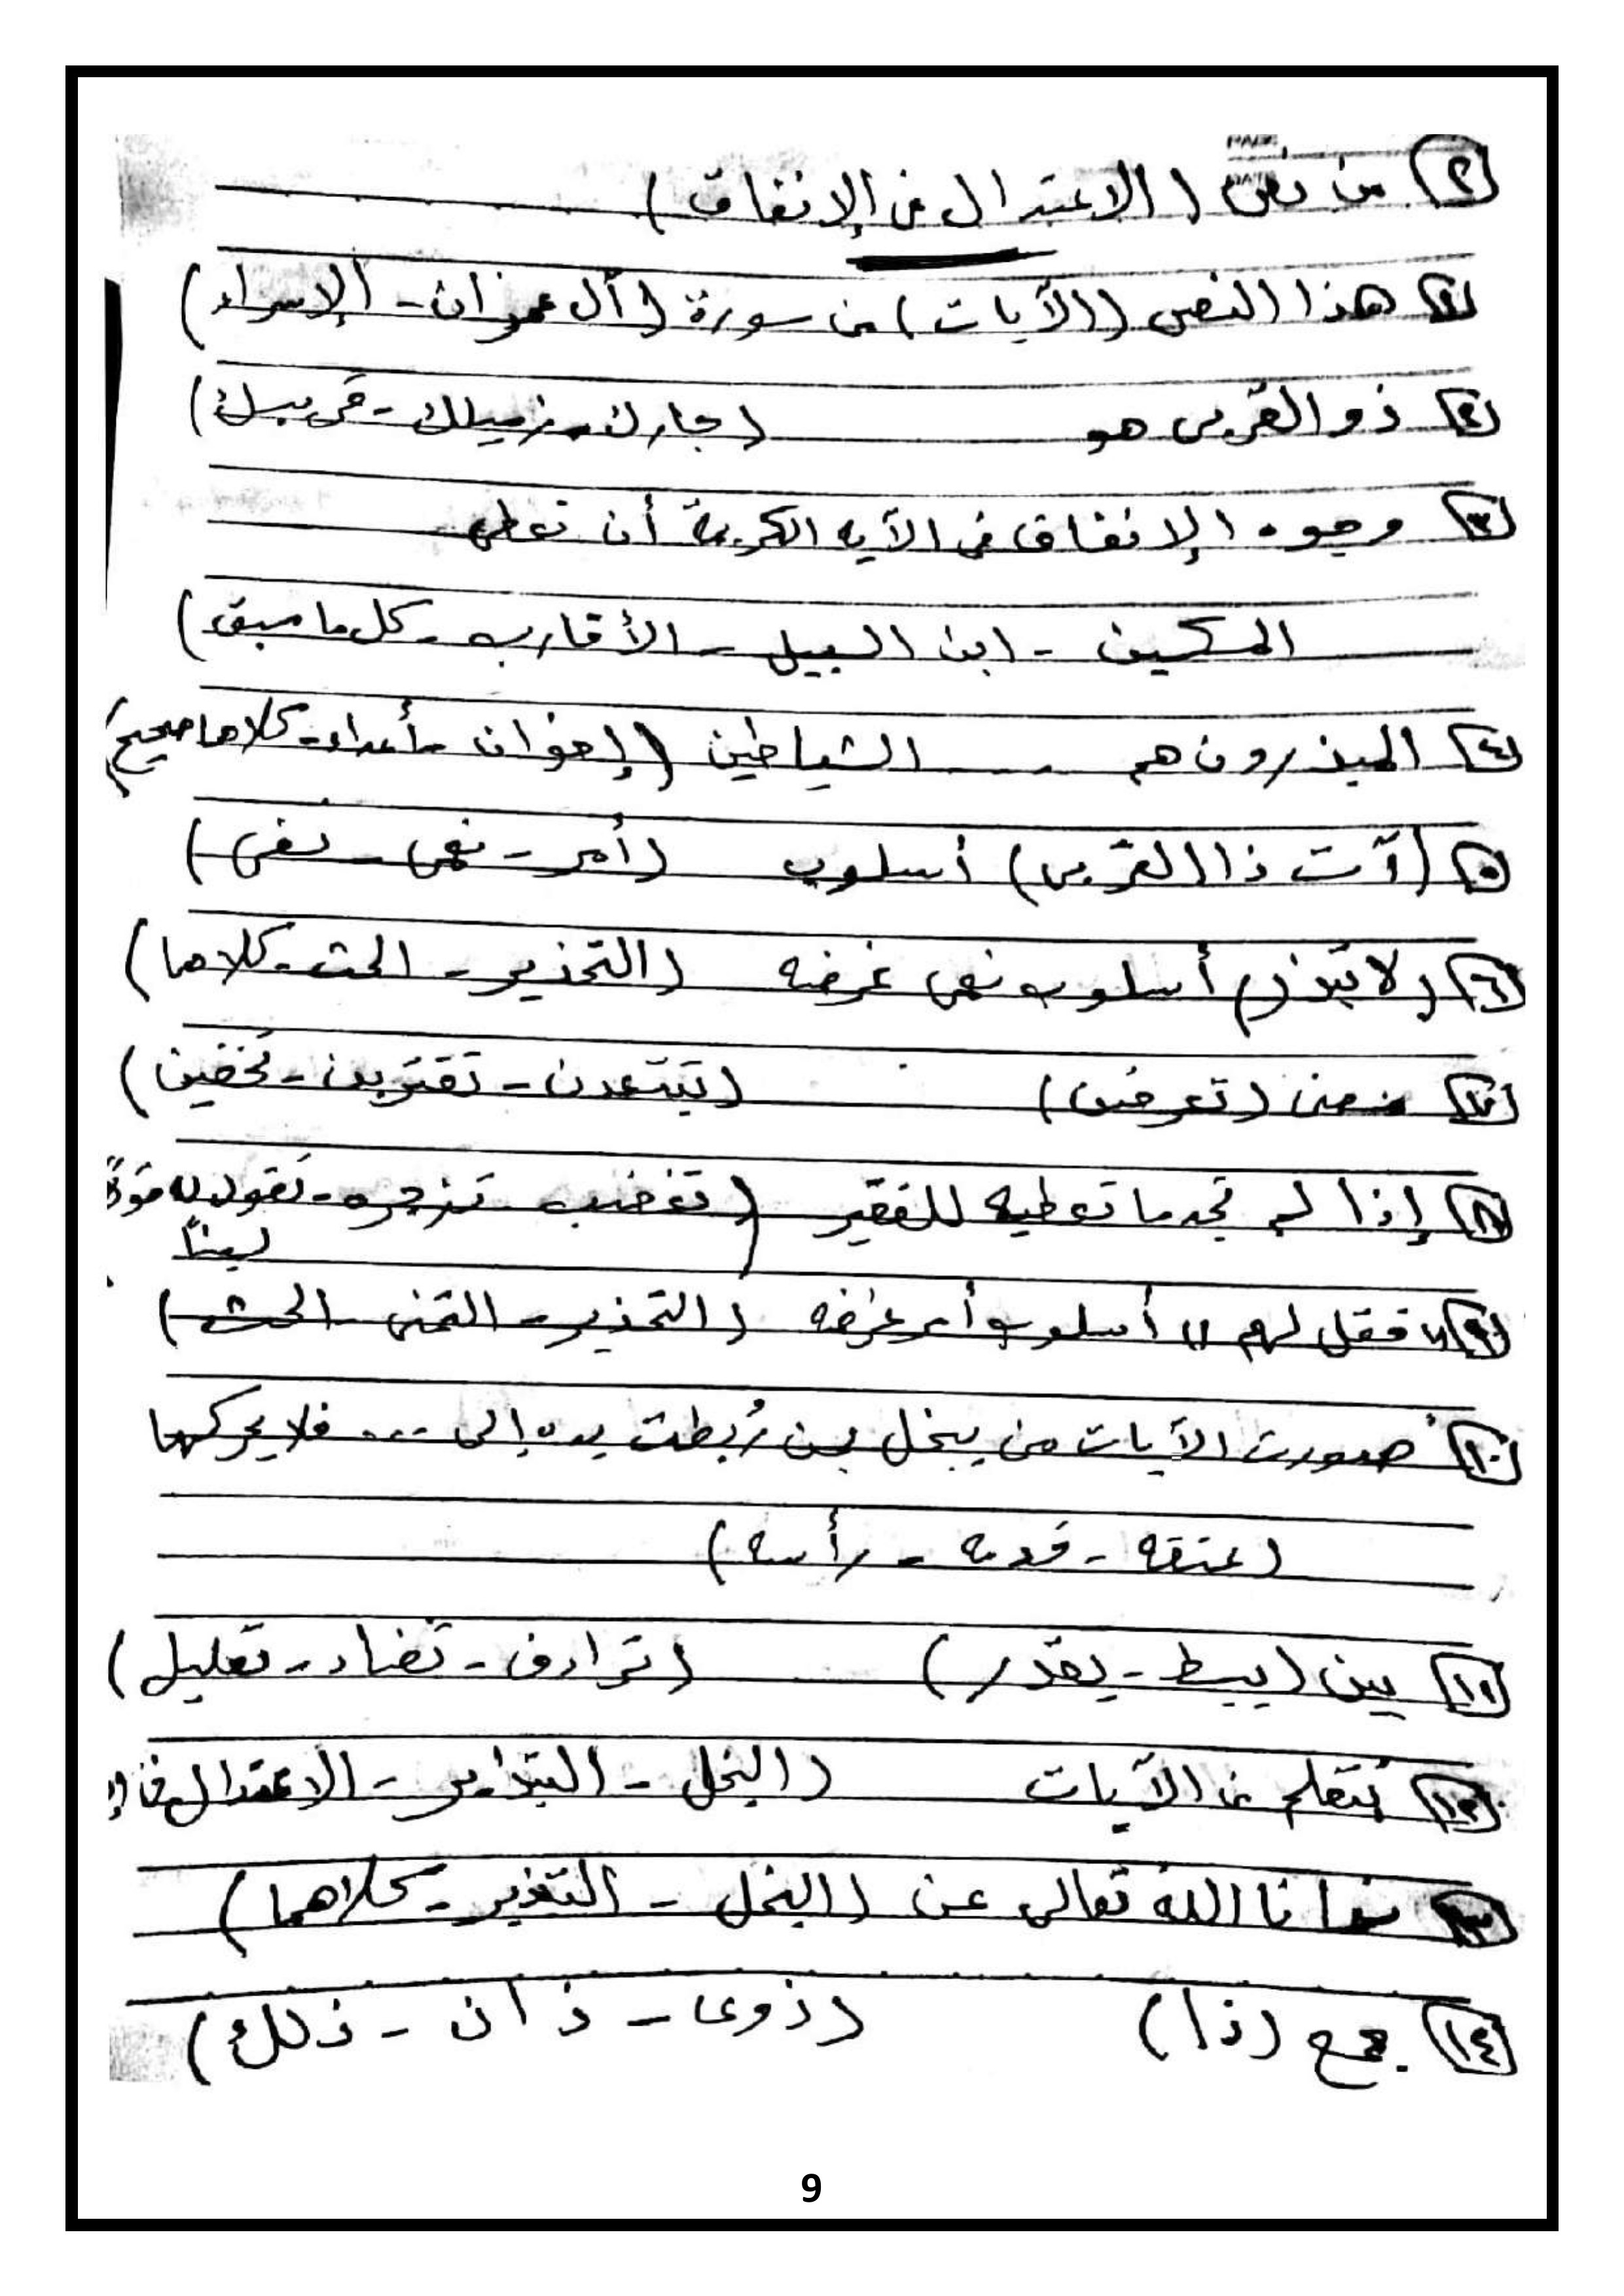 ٢ من نص (الاعتدال في الإنفاق)
١ هذا النص (الآيات) من سورة (آل عمران - الإسراء)
٢ ذو القربى هو (جارك - زميلك - قريبك)
٣ وجوه الإنفاق في الآيه الكريمة أن نعطى
المسكين - ابن السبيل - الأقارب - كل ما سبق)
٤ المبذرون هم ..... الشياطين (إخوان - أعداء - كلاهما صحيح)
٥ (آت ذا القربى) أسلوب (أمر - نهى - نفى)
٦ (لا تبذر) أسلوب نهى غرضه (التحذير - الحث - كلاهما)
٧ معنى (تعرضن) (تبتعدن - تقتربن - تخفين)
٨ إذا لم تجد ما تعطيه للفقير (تغضب - تزجره - تقول له قولاً
ليناً
٩ " فقل لهم " أسلوب أمر غرضه (التحذير - التمنى - الحث)
١٠ صورت الآيات من يبخل بمن رُبطت يده إلى ... فلا يحركها
(عنقه - قدمه - رأسه)
١١ بين (يبسط - يقدر) (ترادف - تضاد - تعليل)
١٢ نتعلم من الآيات (البخل - التبذير - الاعتدال في
١٣ نهانا الله تعالى عن (البخل - التبذير - كلاهما)
١٤ جمع (ذا) (ذوى - ذان - ذلك)
9